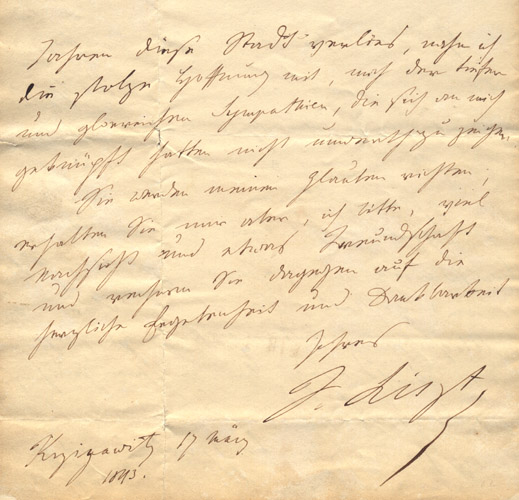 Jahren diese Stadt verlies, nahm ich
die stolze Hoffnung mit, mich der tiefen
und glorreichen Sympathien, die sich an mich
geknüpft hatten nicht unwerth zu zeigen.
Sie werden meinen Glauben
erhalten Sie mir aber, ich bitte, viel
Nachsicht und etwas Freundschaft
und Sie dagegen auf die
herzliche Ergebenheit und Dankbarkeit
Ihres
F. Liszt
17 März
1843.